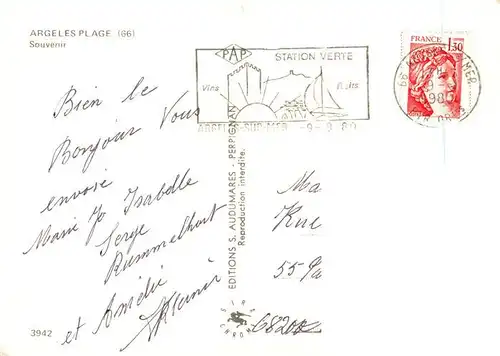 ARGELES PLAGE (66)
Souvenir
PAP
STATION VERTE
Vins
Fruits
ARGELES-SUR-MER -9-9 80
FRANCE
1,30
66 MER
-9-
1980
Bien le
Bonjour Vous
envoie
Marie Jo Isabelle
Serge
Rummelhart
et Amélie
Ma
Rue
55
68200
EDITIONS S. AUDUMARES - PERPIGNAN
Reproduction interdite.
3942